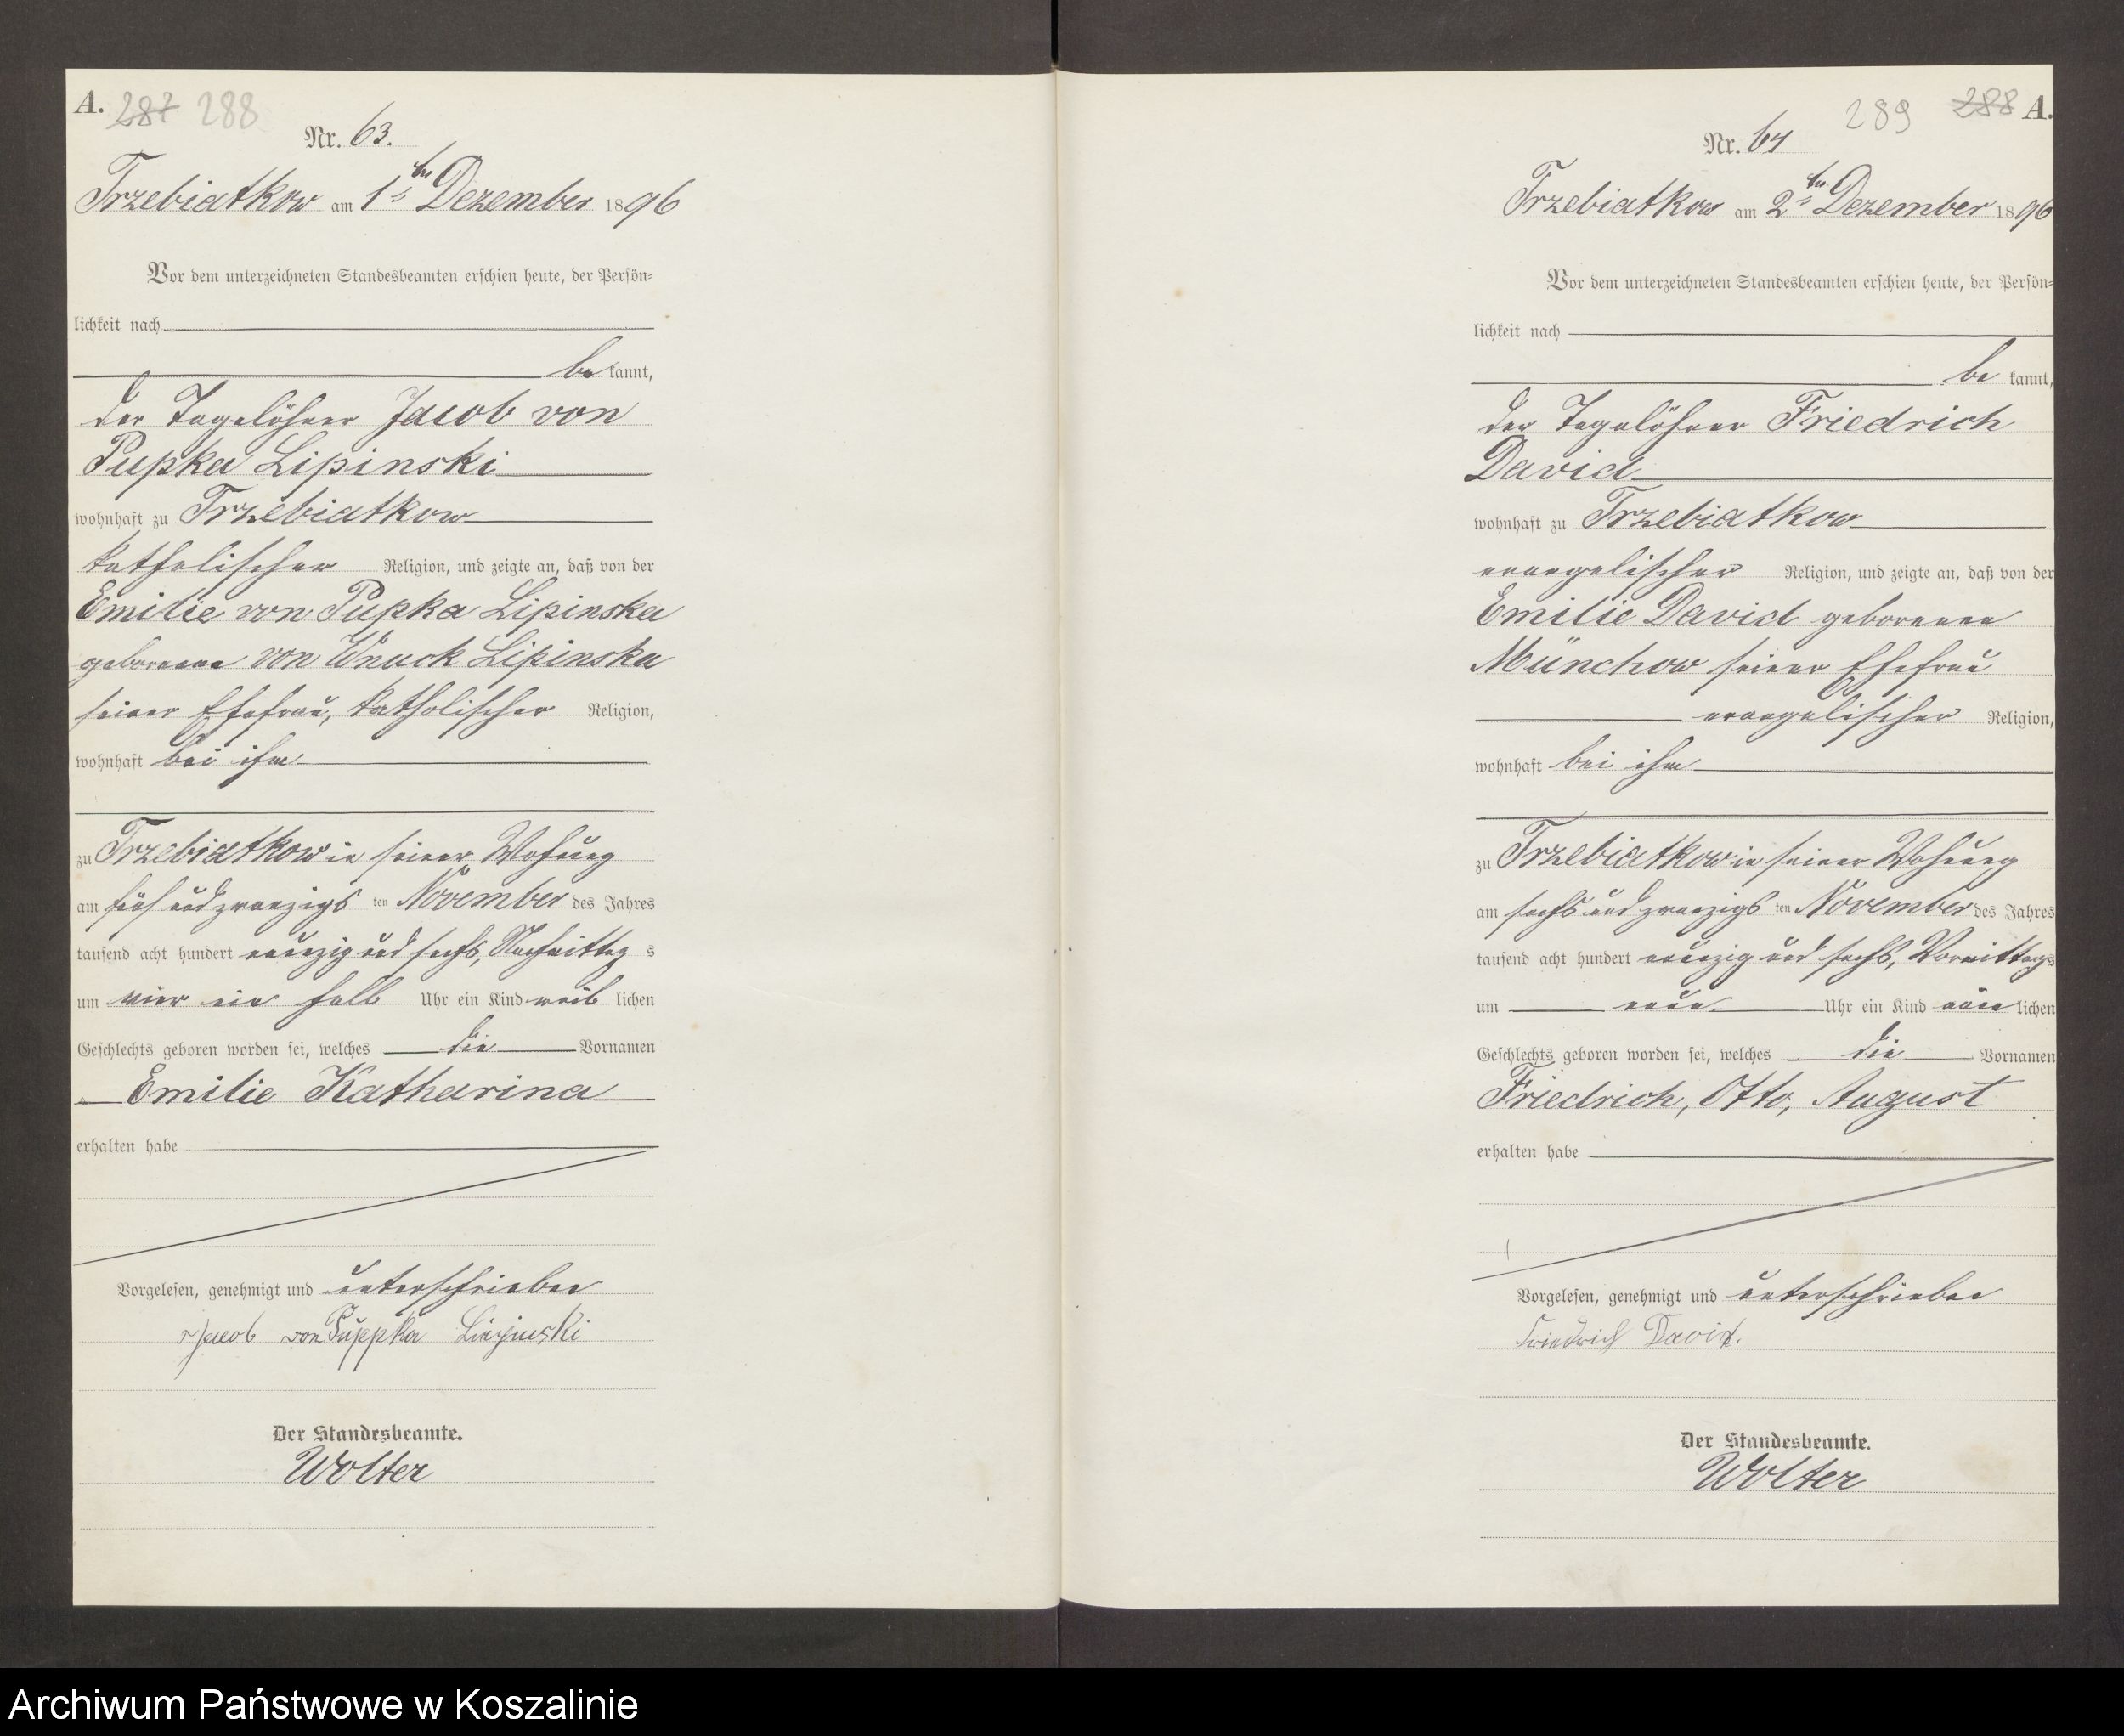 A. 287 288
Nr. 63.
Trzebiatkow am 1sten Dezember 1896
Vor dem unterzeichneten Standesbeamten erschien heute, der Persön-
lichkeit nach
be kannt,
der Tagelöhner Jacob von
Pupka Lipinski
wohnhaft zu Trzebiatkow
katholischer Religion, und zeigte an, daß von der
Emilie von Pupka Lipinska
geborenen von Wnuck Lipinska
seiner Ehefrau, katholischer Religion,
wohnhaft bei ihm
zu Trzebiatkow in seiner Wohung
am fünf und zwanzigs ten November des Jahres
tausend acht hundert neunzig und sechs, Nachmittag s
um vier ein halb Uhr ein Kind weib lichen
Geschlechts geboren worden sei, welches die Vornamen
Emilie Katharina
erhalten habe
Vorgelesen, genehmigt und unterschrieben
Jacob von Puppka Lipinski
Der Standesbeamte.
Wolter
289 288 A.
Nr. 64
Trzebiatkow am 2sten Dezember 1896
Vor dem unterzeichneten Standesbeamten erschien heute, der Persön-
lichkeit nach
be kannt,
der Tagelöhner Friedrich
David
wohnhaft zu Trzebiatkow
evangelischer Religion, und zeigte an, daß von der
Emilie David geborenen
Münchow seiner Ehefrau
evangelischer Religion,
wohnhaft bei ihm
zu Trzebiatkow in seiner Wohung
am sechs und zwanzigs ten November des Jahres
tausend acht hundert neunzig und sechs, Vormittags
um neun Uhr ein Kind män lichen
Geschlechts geboren worden sei, welches die Vornamen
Friedrich, Otto, August
erhalten habe
Vorgelesen, genehmigt und unterschrieben
Friedrich David.
Der Standesbeamte.
Wolter
Archiwum Państwowe w Koszalinie